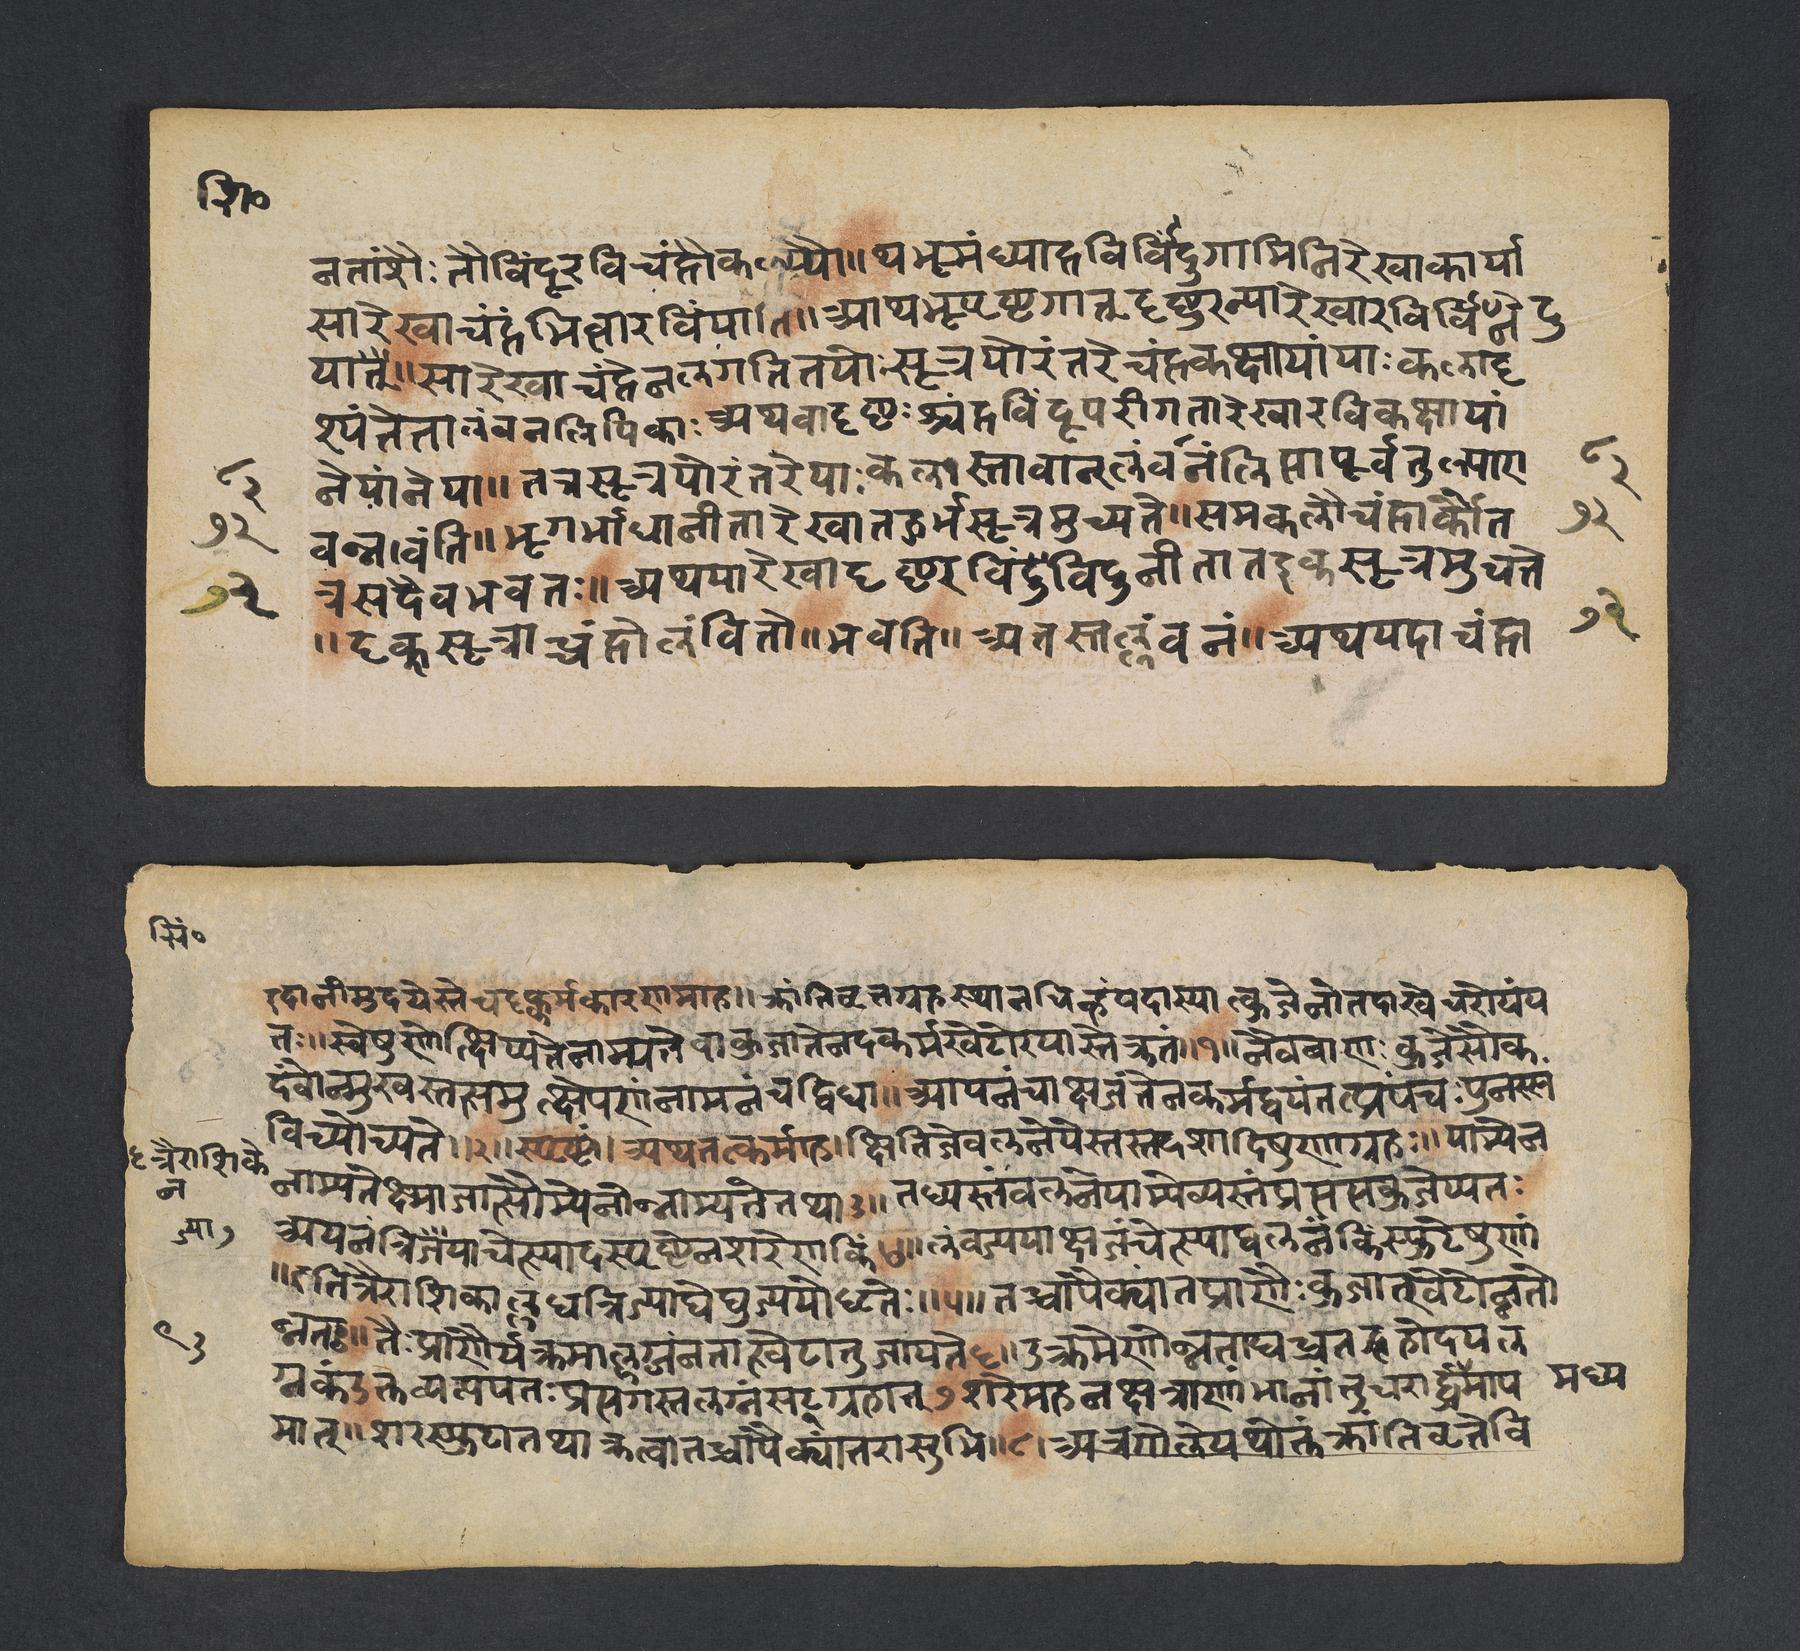 सि०
नतांशैः तौ विंदूरविचंद्रौ कल्प्यौ ॥ थ भूमंध्याद्रविविंदुगामिनि रेखा कार्या
सा रेखा चंद्रं भित्वा रविं याति ॥ आथ भूपृष्टगात् दृष्टुरन्या रेखा रविविंण्नैदु
यातू ॥ सा रेखा चंद्रे न लगति तयोः सूत्रयोरंतरे चंद्रकक्षायां याः कला दृ
श्यंते ता लंबनलिपिकाः अथवा दृष्टुः श्चंद्रविंदूपरीगता रेखा रविकक्षायां
नेयां नेया ॥ तत्र सूत्रयोरंतरे याः कला स्तावान् लंवनं लिप्ता पूर्वतुल्या ए
व भवंति ॥ भूगर्भाद्या नीता रेखा तद्गर्भसूत्रमुच्यते ॥ समकलौ चंद्रार्कौ त
त्र सदैव भवतः ॥ अथ या रेखा दृष्टुर विंदुविंदु नीता तदृक्सूत्रमुचते
॥ दृक् सूत्राच्चंद्रो लंवितो ॥ भवति ॥ अतस्तल्लंवनं ॥ अथ यदा चंद्रा
८२
७२
७२
८२
७२
७२
सिं०
इदानीमुदयेस्ते च दृक्कर्मकारणमाह ॥ क्रांतिवृत्तग्रहस्थानचिन्हं यदा स्यात्कुजे नो तदा खेचरोयं य
तः ॥ स्वेषुणोत्क्षिप्यते नाम्यते वा कुजात्तेन दृक्कर्म खेटोदयास्ते कृतं ॥१॥ नैव बाणः कुजेसौ क
दंवोन्मुखस्तत्समुत्क्षेपणं नामनं च द्विधा ॥ आयनं चाक्षजं तेन कर्मद्वयं तत्प्रपंचः पुनस्त्व
विच्योच्यते ॥२॥ स्पष्टं । अथ तत्कर्माह । क्षितिजे वलने ये स्तस्तद्वशादिषुणा ग्रहः ॥ याम्येन
नाम्यते क्ष्माजात्सौम्येनोन्नाम्यते तथा ३॥ तद्व्यस्तं वलने याम्ये व्यस्तं प्रसक्कुजे प्यतः
अयनं त्रिज्यया चेत्स्यादस्पृष्टेन शरेण किं ४॥ लंवज्ययाक्षजं चेत्स्याद्वलनं किं स्फुटेषुणां
॥ इति त्रैराशिकाल्लघत्रिज्याघे घुज्ययोद्धृतेः ॥५॥ तच्चापैक्यांत प्राणैः कुजात्खेटोन्नतो
न्नतः ॥ तैः प्राणैर्यक्रमाल्लग्नंनतात्खेटात्तु जायते दृ ॥ उक्तमेणोन्नताद्यच्च तद्ग्रहोदयल
ग्नकं उक्तव्यत्ययतः प्रसगस्तलग्नं सट्ग्रहात् ७ शरे महनक्षत्राणां भानां तु चरार्द्धमाय
मातू ॥ शरस्फुटात्तथा कृत्वा तच्चापैक्यांतरासुभि ॥८। अत्र गोले पथोक्तं क्रांतिवृत्ते वि
दृ त्रैराशिके
न
ज्या ७
९३
मध्य